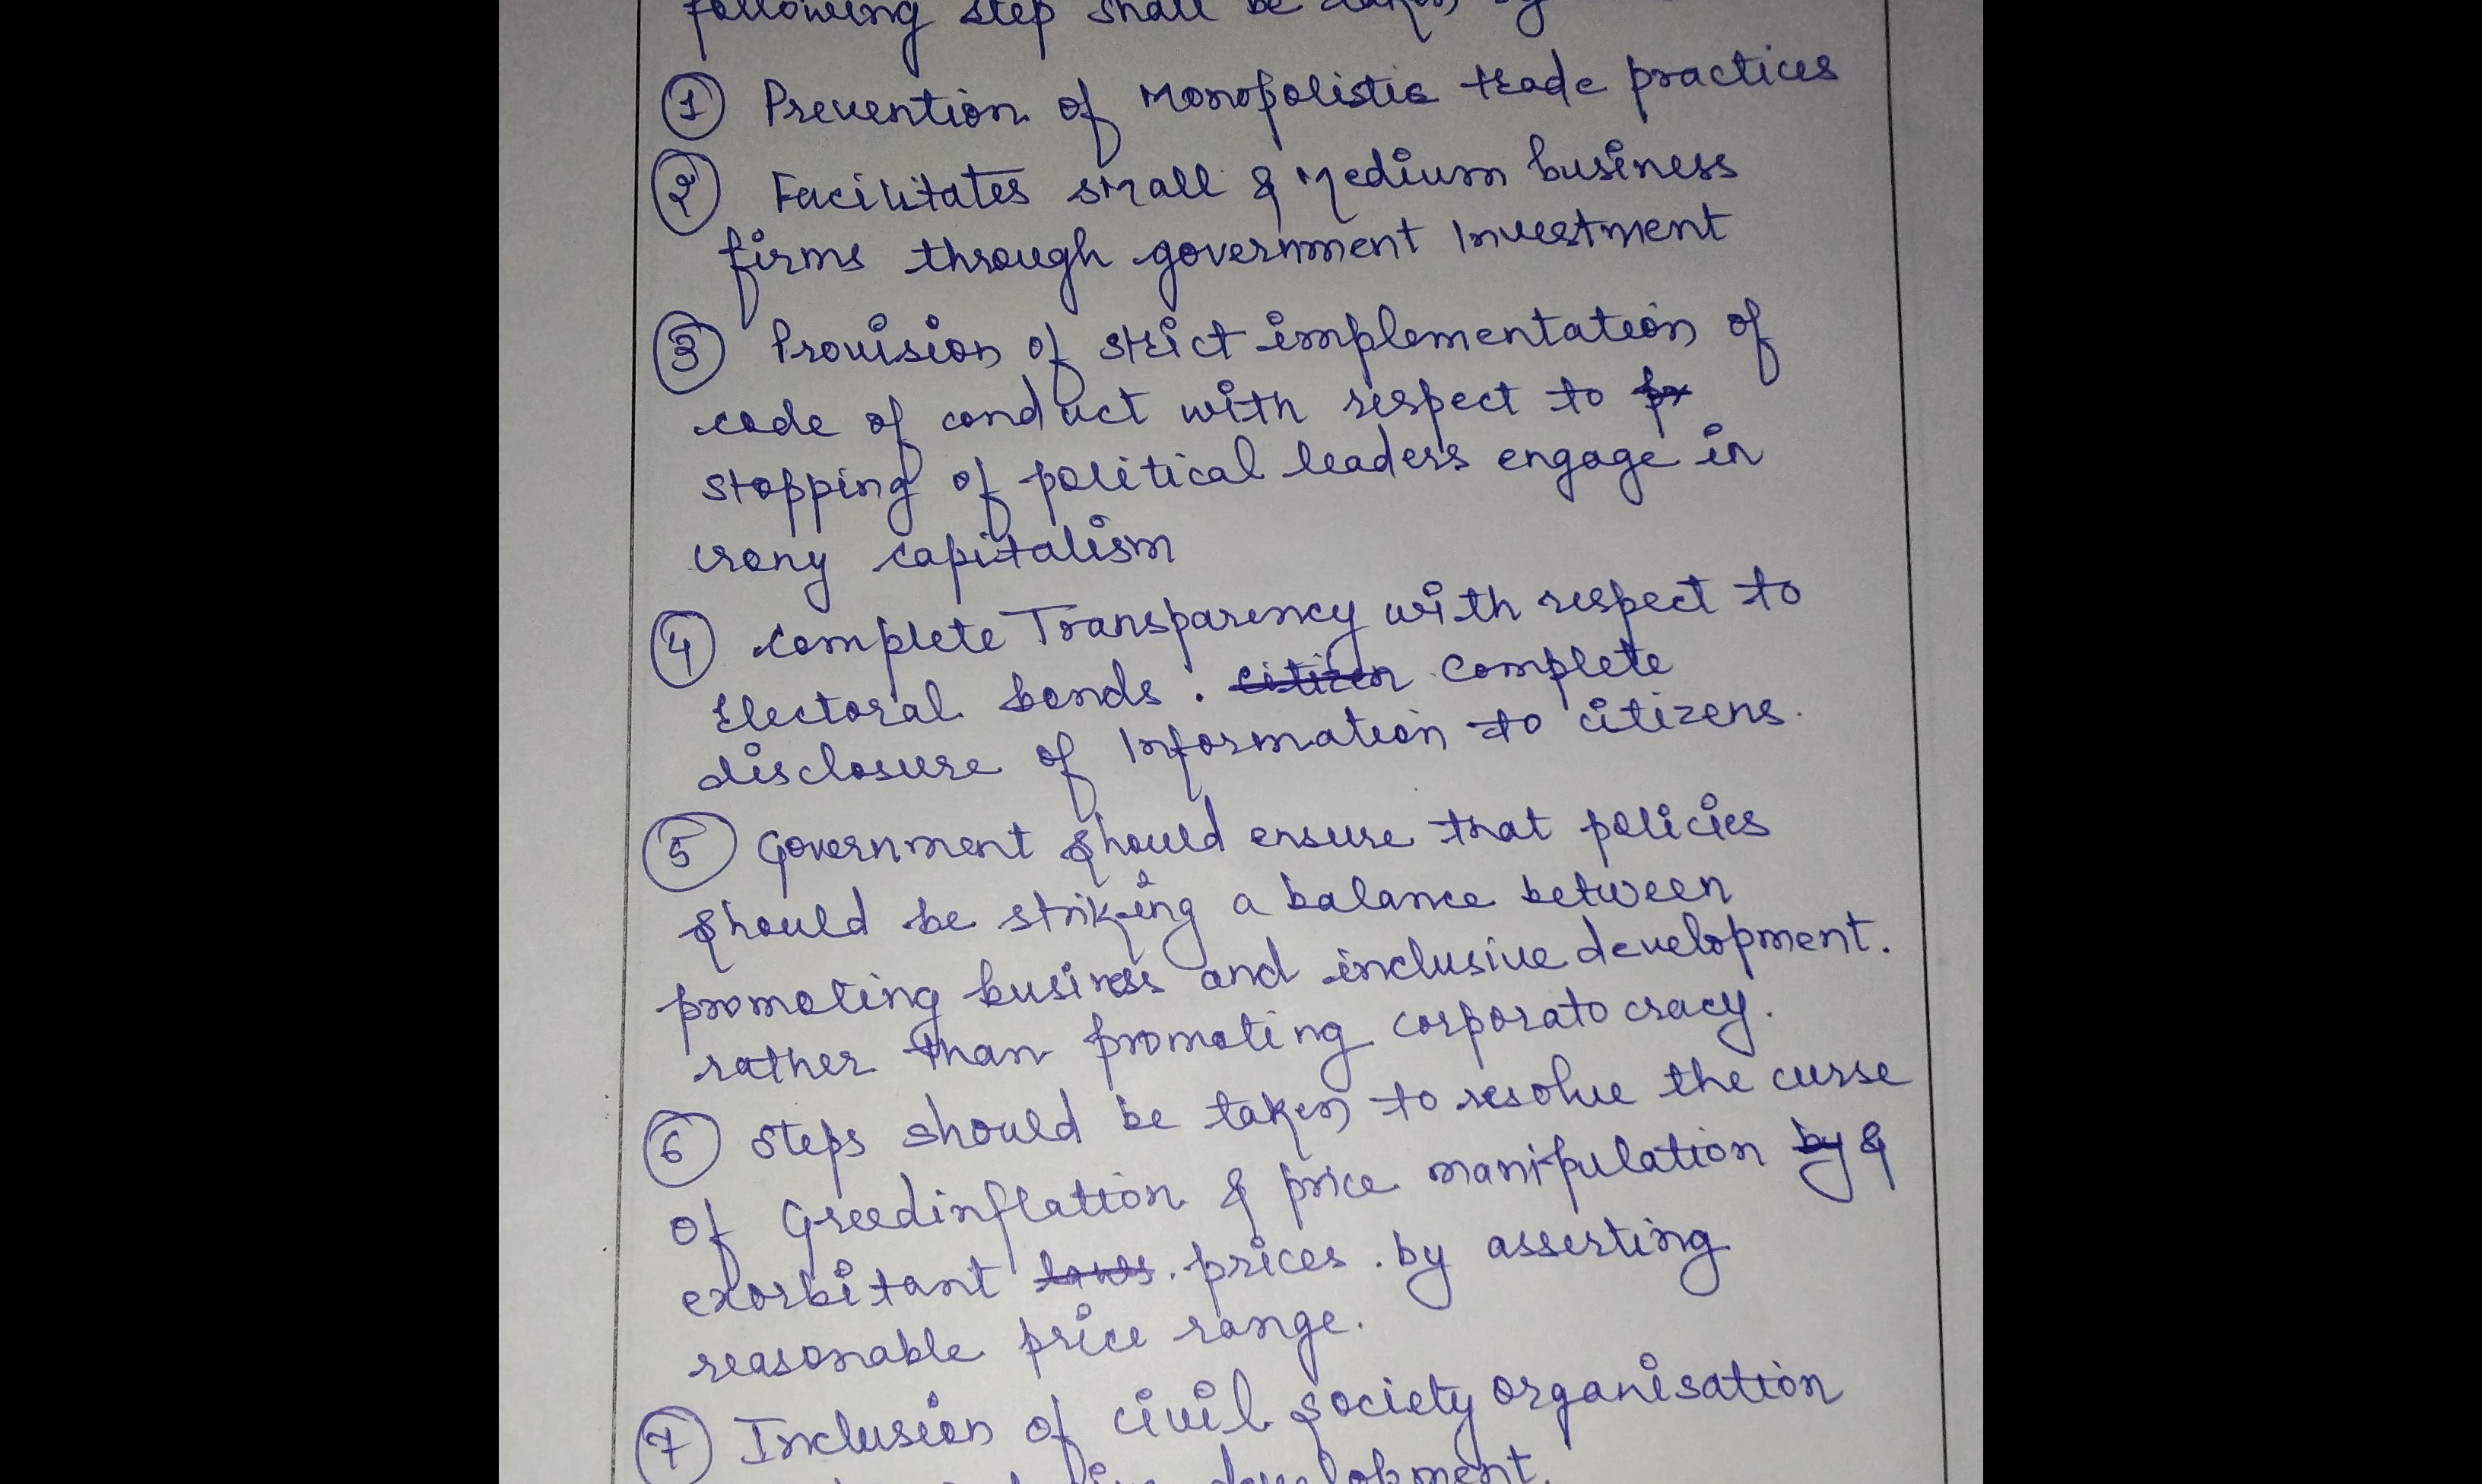 following step shall be taken by
① Prevention of Monopolistic trade practices
② Facilitates small & Medium business
firms through government Investment
③ Provision of strict implementation of
code of conduct with respect to
stopping of political leaders engage in
crony capitalism
④ complete Transparency with respect to
Electoral bonds. citizen complete
disclosure of Information to citizens.
⑤ Government should ensure that policies
should be striking a balance between
promoting business and inclusive development.
rather than promoting corporatocracy.
⑥ steps should be taken to resolve the curse
of Greedinflation & price manipulation by &
exorbitant prices. by asserting
reasonable price range.
⑦ Inclusion of civil society organisation
development.